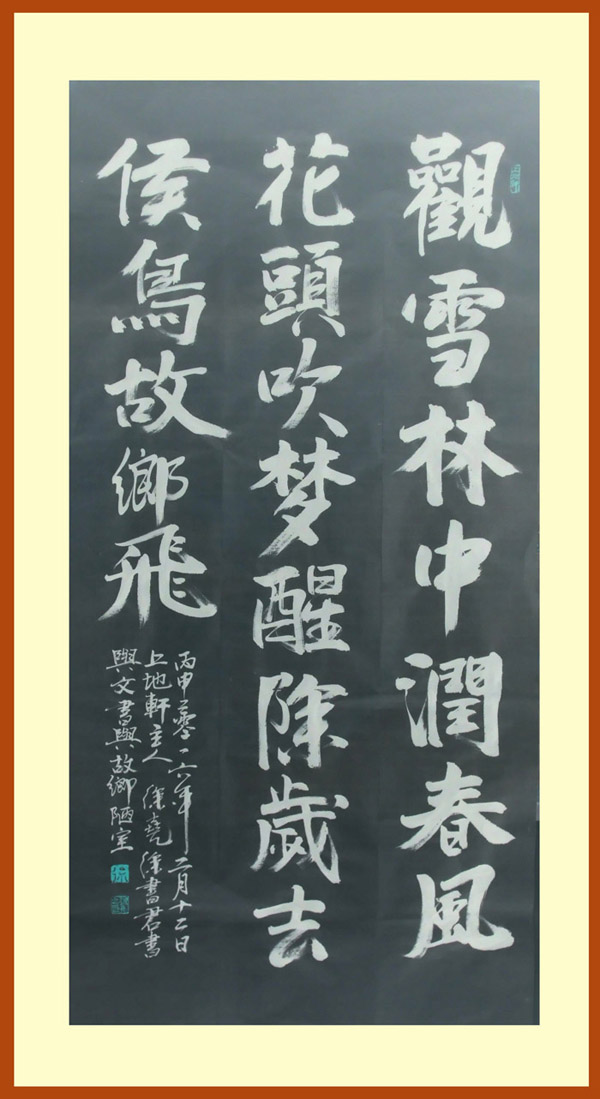 觀雪林中潤春風
花頭吹梦醒除歲去
侯鳥故鄉飛
丙申二零一六年二月十二日
上地軒主人 徐堯徐書君書
與文書與故鄉陋室